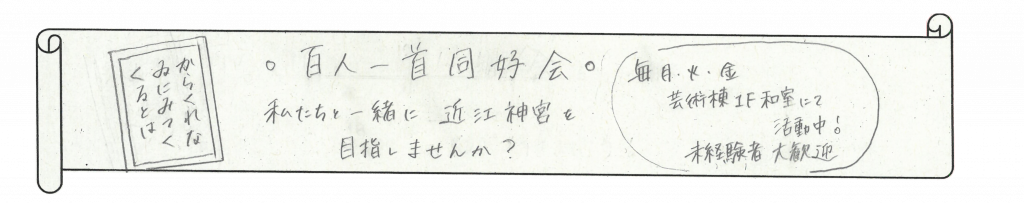 からくれな
ゐにみつく
くるとは
○百人一首同好会○
私たちと一緒に近江神宮を
目指しませんか?
毎月・火・金
芸術棟1F和室にて
活動中!
未経験者大歓迎